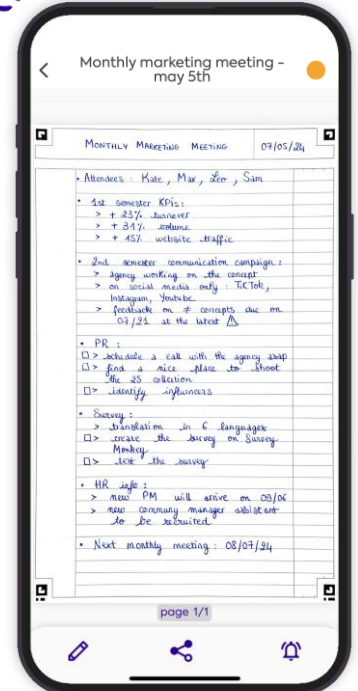 Monthly marketing meeting -
may 5th
MONTHLY MARKETING MEETING 07/05/24
• Attendees : Kate, Max, Leo, Sam
• 1st semester KPIs :
> + 23% turnover
> + 31% volume
> + 45% website traffic
• 2nd semester communication campaign :
> agency working on the concept
> on social media only : TikTok,
Instagram, Youtube
> feedback on ≠ concepts due on
07/21 at the latest ⚠
• PR :
> schedule a call with the agency asap
> find a nice place to shoot
the 25 collection
> identify influencers
• Survey :
> translation in 6 languages
> create the survey on Survey
Monkey
> test the survey
• HR info :
> new PM will arrive on 03/06
> new communy manager assistant
to be recruited
• Next monthly meeting : 08/07/24
page 1/1